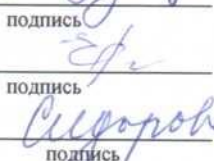 подпись
подпись
Сидоров
подпись